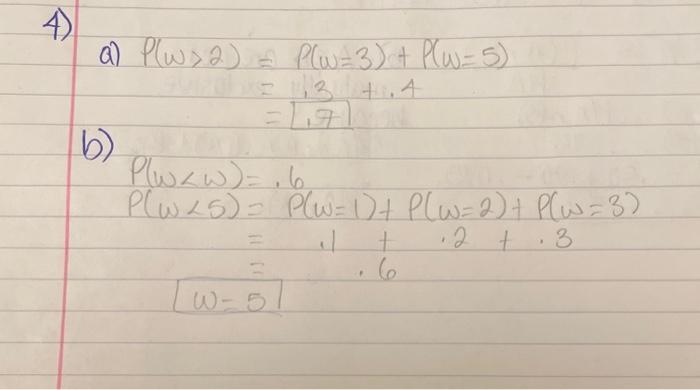 4)
a) P(w>2) = P(w=3) + P(w=5)
= .3 + .4
= .7
b)
P(w<w) = .6
P(w<5) = P(w=1) + P(w=2) + P(w=3)
= .1 + .2 + .3
= .6
w=5